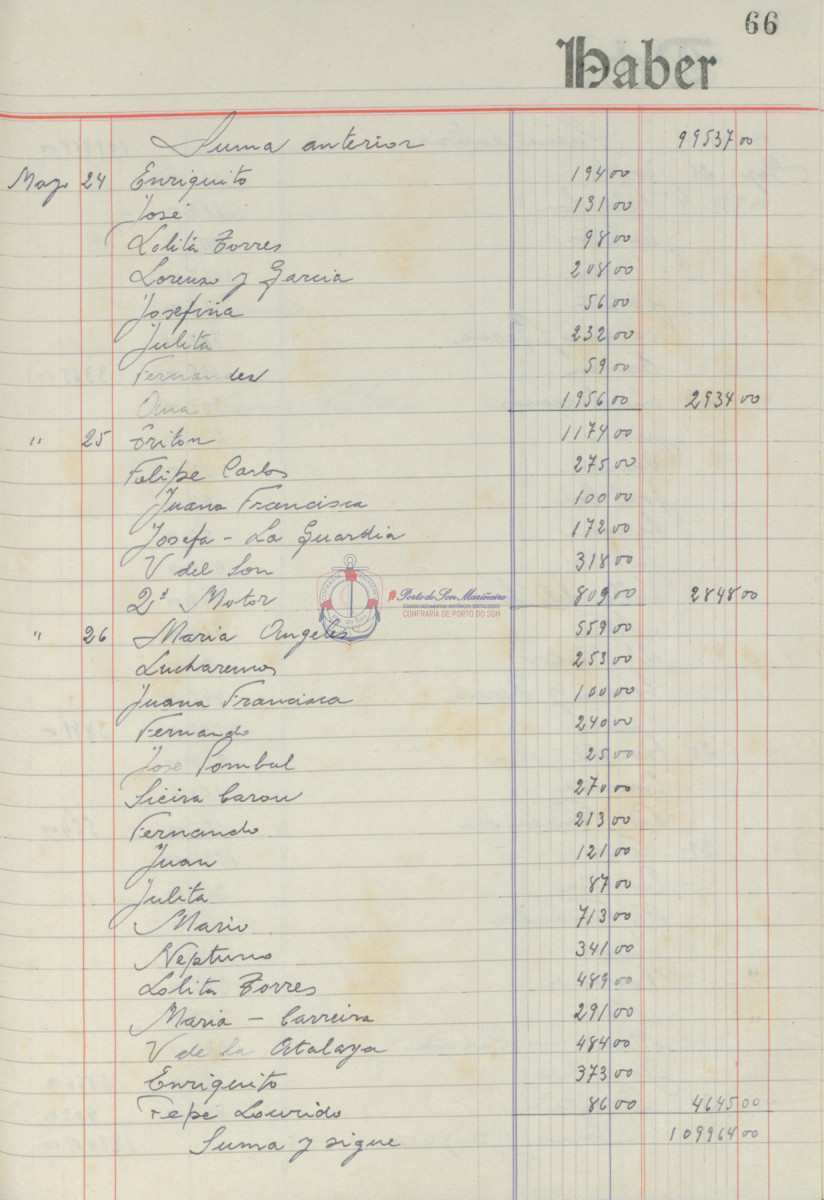 66
Haber
Suma anterior 99537 00
Mayo 24 Enriquito 194 00
José 131 00
Lolita Torres 98 00
Lorenzo y Garcia 208 00
Josefina 56 00
Julita 232 00
Fernandez 59 00
Oma 1956 00 2934 00
" 25 Triton 1174 00
Felipe Carlos 275 00
Juana Francisca 100 00
Josefa - La Guardia 172 00
V del Son 318 00
2º Motor 809 00 2848 00
#Porto do Son Mariñeiro
CONFRARIA DE PORTO DO SON
" 26 Maria Angeles 559 00
Lucharemos 253 00
Juana Francisca 100 00
Fernando 240 00
José Pombal 25 00
Sieira Carou 270 00
Fernando 213 00
Juan 121 00
Julita 87 00
Mario 713 00
Neptuno 341 00
Lolita Torres 489 00
Maria - Carreira 291 00
V de la Atalaya 484 00
Enriquito 373 00
Pepe Lourido 86 00 4645 00
Suma y sigue 109964 00